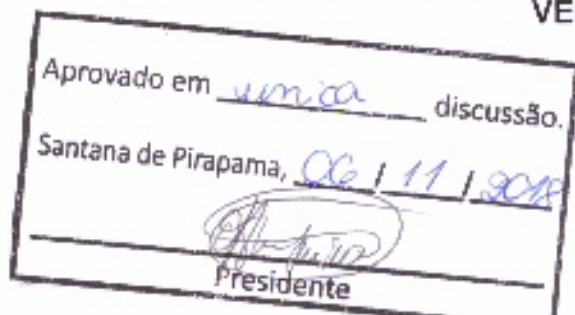 VE
Aprovado em unica discussão.
Santana de Pirapama, 06 / 11 / 2018
Presidente